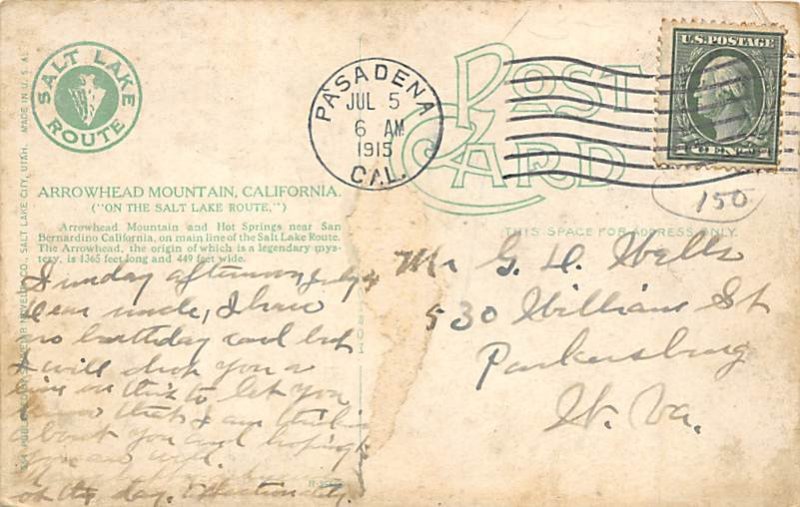 SALT LAKE ROUTE
PASADENA
JUL 5
6 AM
1915
CAL.
POST
CARD
U.S. POSTAGE
150
ARROWHEAD MOUNTAIN, CALIFORNIA.
("ON THE SALT LAKE ROUTE.")
Arrowhead Mountain and Hot Springs near San
Bernardino California, on main line of the Salt Lake Route.
The Arrowhead, the origin of which is a legendary mys-
tery, is 1365 feet long and 449 feet wide.
THIS SPACE FOR ADDRESS ONLY.
Sunday afternoon July 4
Dear uncle, I have
no birthday card but
I will drop you a
line on this to let you
know that I am thinking
about you and hoping
you are well
of the day. Affectionately.
Mr G. D. Wells
530 William St
Parkersburg
W. Va.
SALT LAKE CITY, UTAH. MADE IN U. S. A.